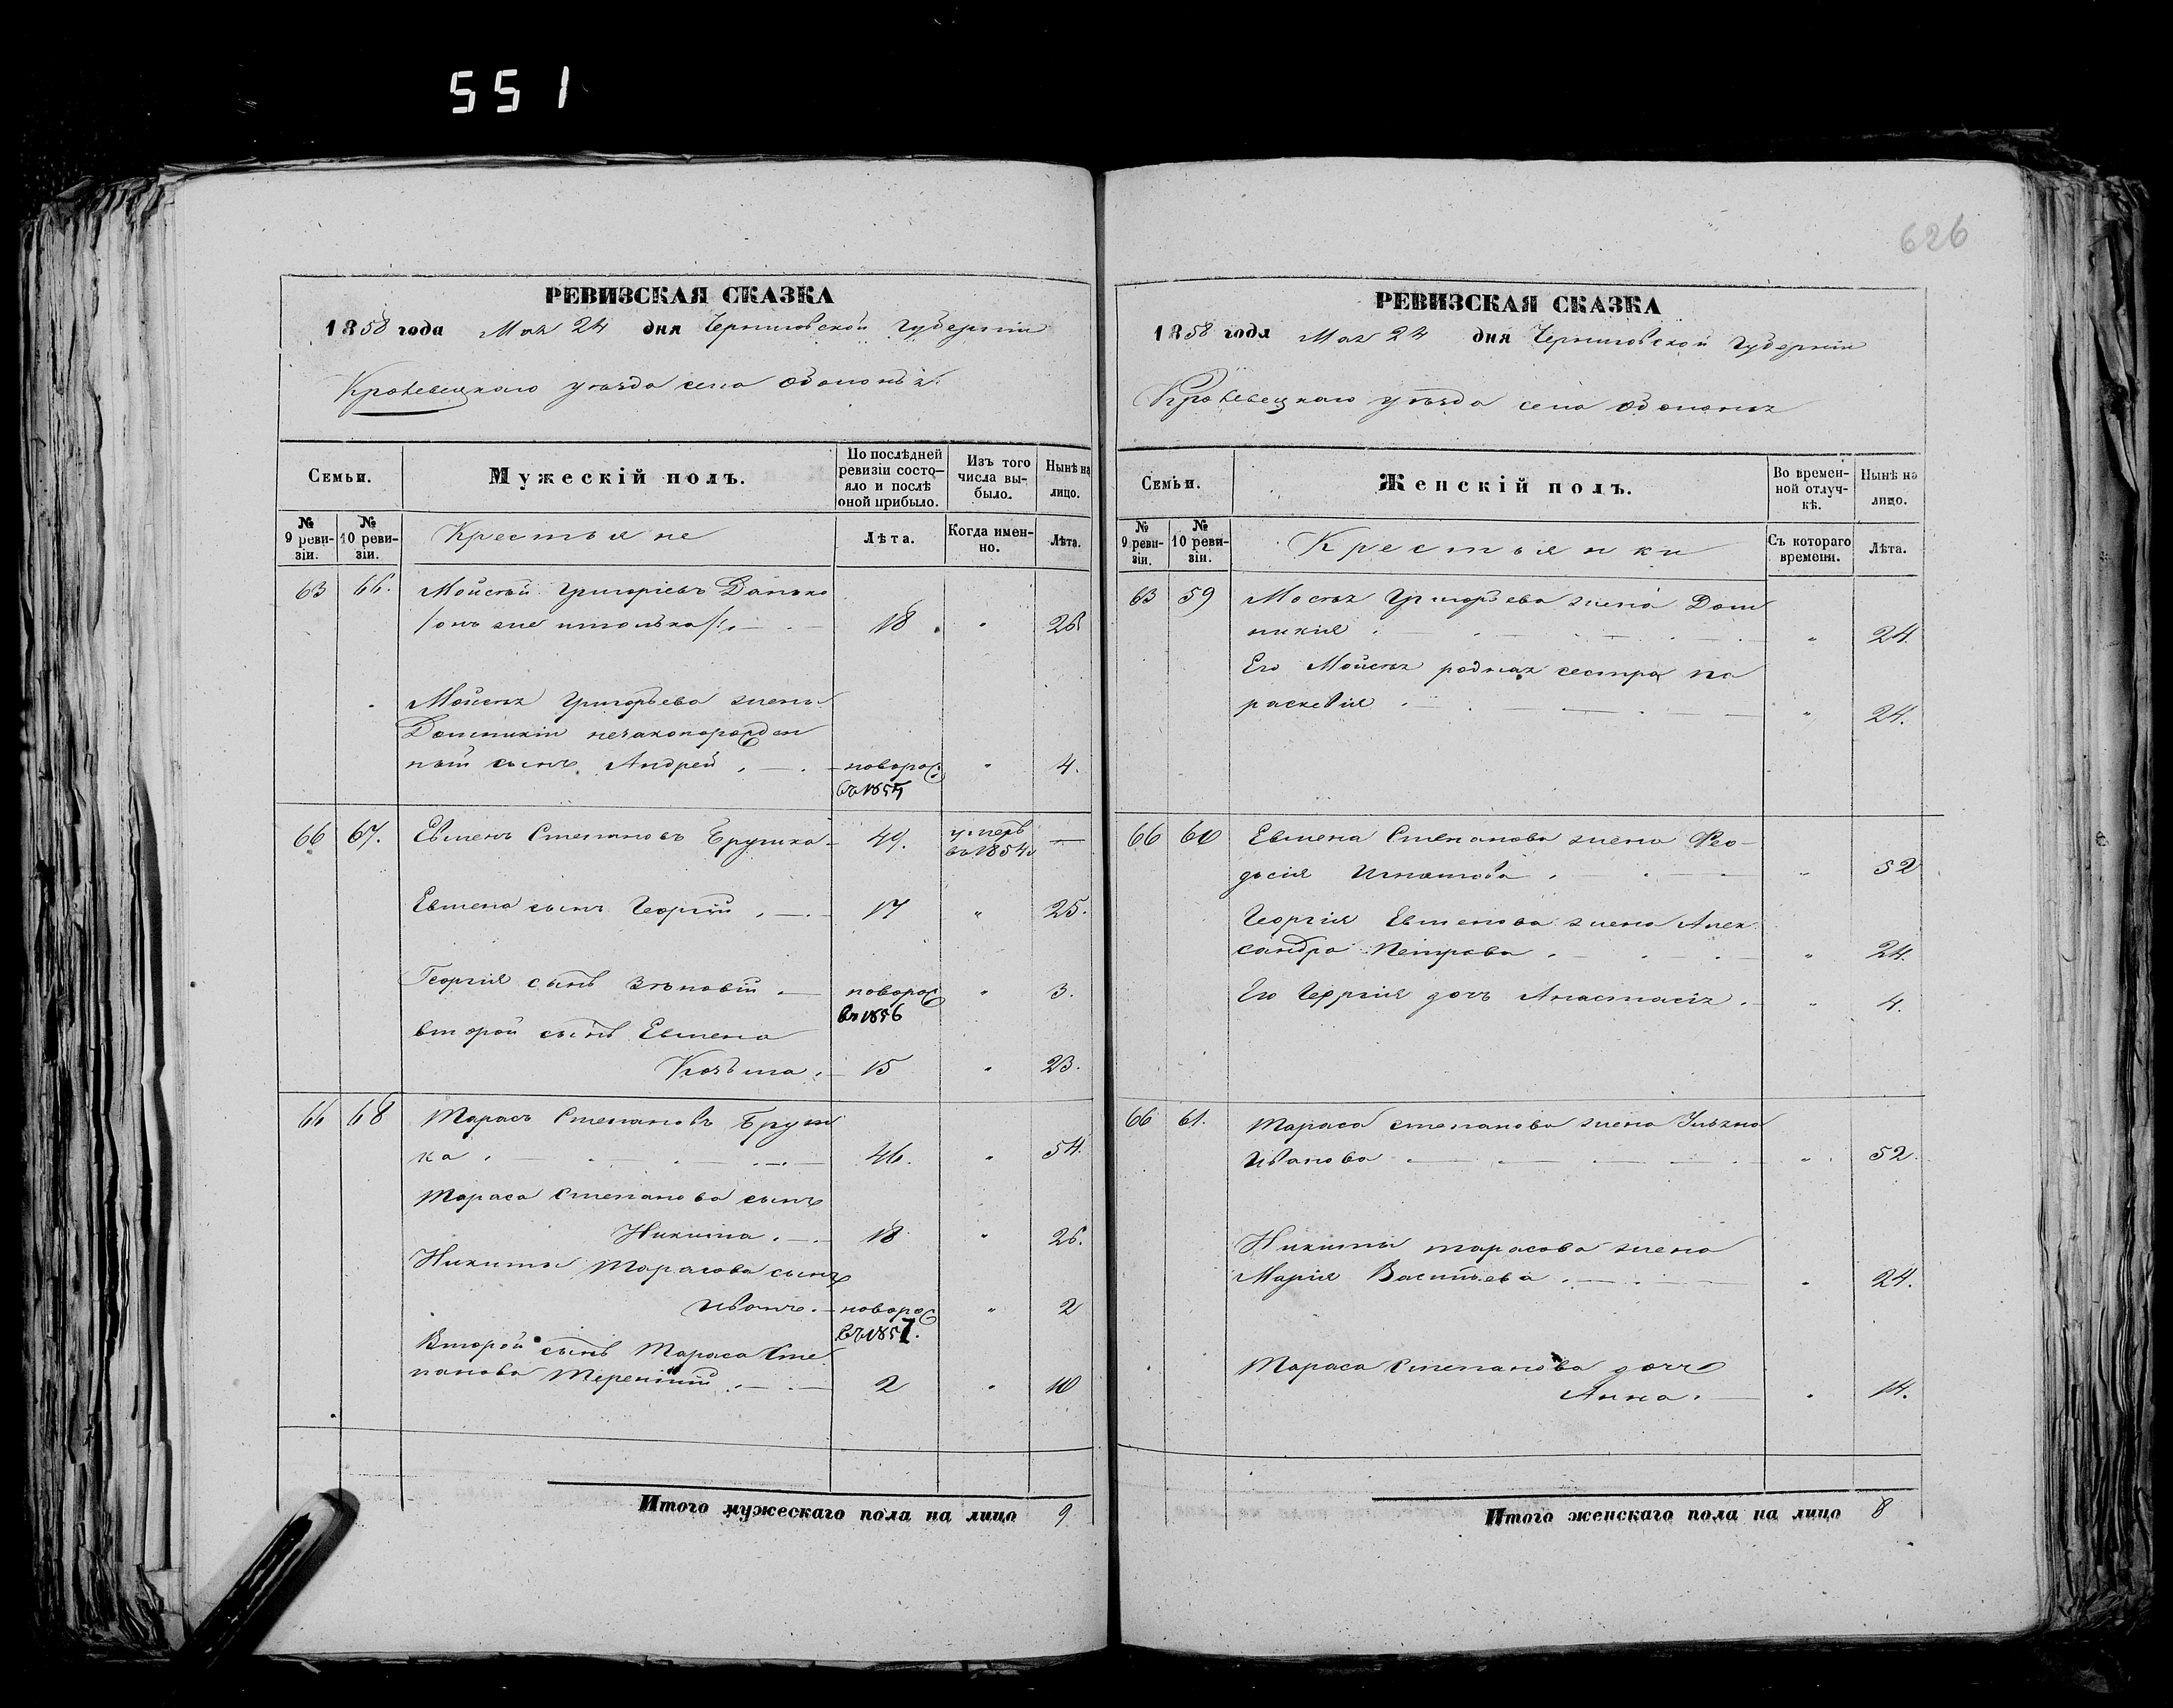 551
626
РЕВИЗСКАЯ СКАЗКА
1858 года Мая 24 дня Черниговской губерніи
Кролевецкаго уѣзда села Обтоловъ
Семьи.
Мужескій полъ.
По послѣдней ревизіи состояло и послѣ оной прибыло.
Изъ того числа выбыло.
Нынѣ на лицо.
№ 9 ревизіи.
№ 10 ревизіи.
Крестьяне
Лѣта.
Когда именно.
Лѣта.
63 66. Мойсѣй Григоріевъ Данько
/онъ же / 18 „ 26
Мойсея Григорьева жены
Домникіи незаконорожден
ный сынъ Андрей новорож „ 4.
въ 1855
66 67. Евменъ Степановъ Брушка 49. умеръ —
въ 1854
Евмена сынъ Георгій 17 „ 25.
Георгія сынъ Зѣновій новорож „ 3.
въ 1856
второй сынъ Евмена
Козьма 15 „ 23.
66 68 Тарасъ Степановъ Бруш
ка 46. „ 54.
Тараса Степанова сынъ
Никита 18 „ 26.
Никиты Тарасова сынъ
Иванъ новорож „ 2
въ 1857.
Второй сынъ Тараса Сте
панова Терентій 2 „ 10
Итого мужескаго пола на лицо 9
РЕВИЗСКАЯ СКАЗКА
1858 года Мая 24 дня Черниговской губерніи
Кролевецкаго уѣзда села
Семьи.
Женскій полъ.
Во временной отлучкѣ.
Нынѣ на лицо.
№ 9 ревизіи.
№ 10 ревизіи.
Крестьянки
Съ котораго времени.
Лѣта.
63 59 Мосея Григорьева жена Дом
никія „ 24.
Его Мойсея родная сестра Па
раскевія „ 24.
66 60 Евмена Степанова жена Фео-
досія Игнатова „ 52
Георгія Евменова жена Алек
сандра Петрова „ 24.
Его Георгія дочь Анастасія „ 4.
66 61. Тараса Степанова жена Ульяна
Иванова „ 52.
Никиты Тарасова жена
Марія Васильева „ 24.
Тараса Степанова дочь
Анна. „ 14.
Итого женскаго пола на лицо 8